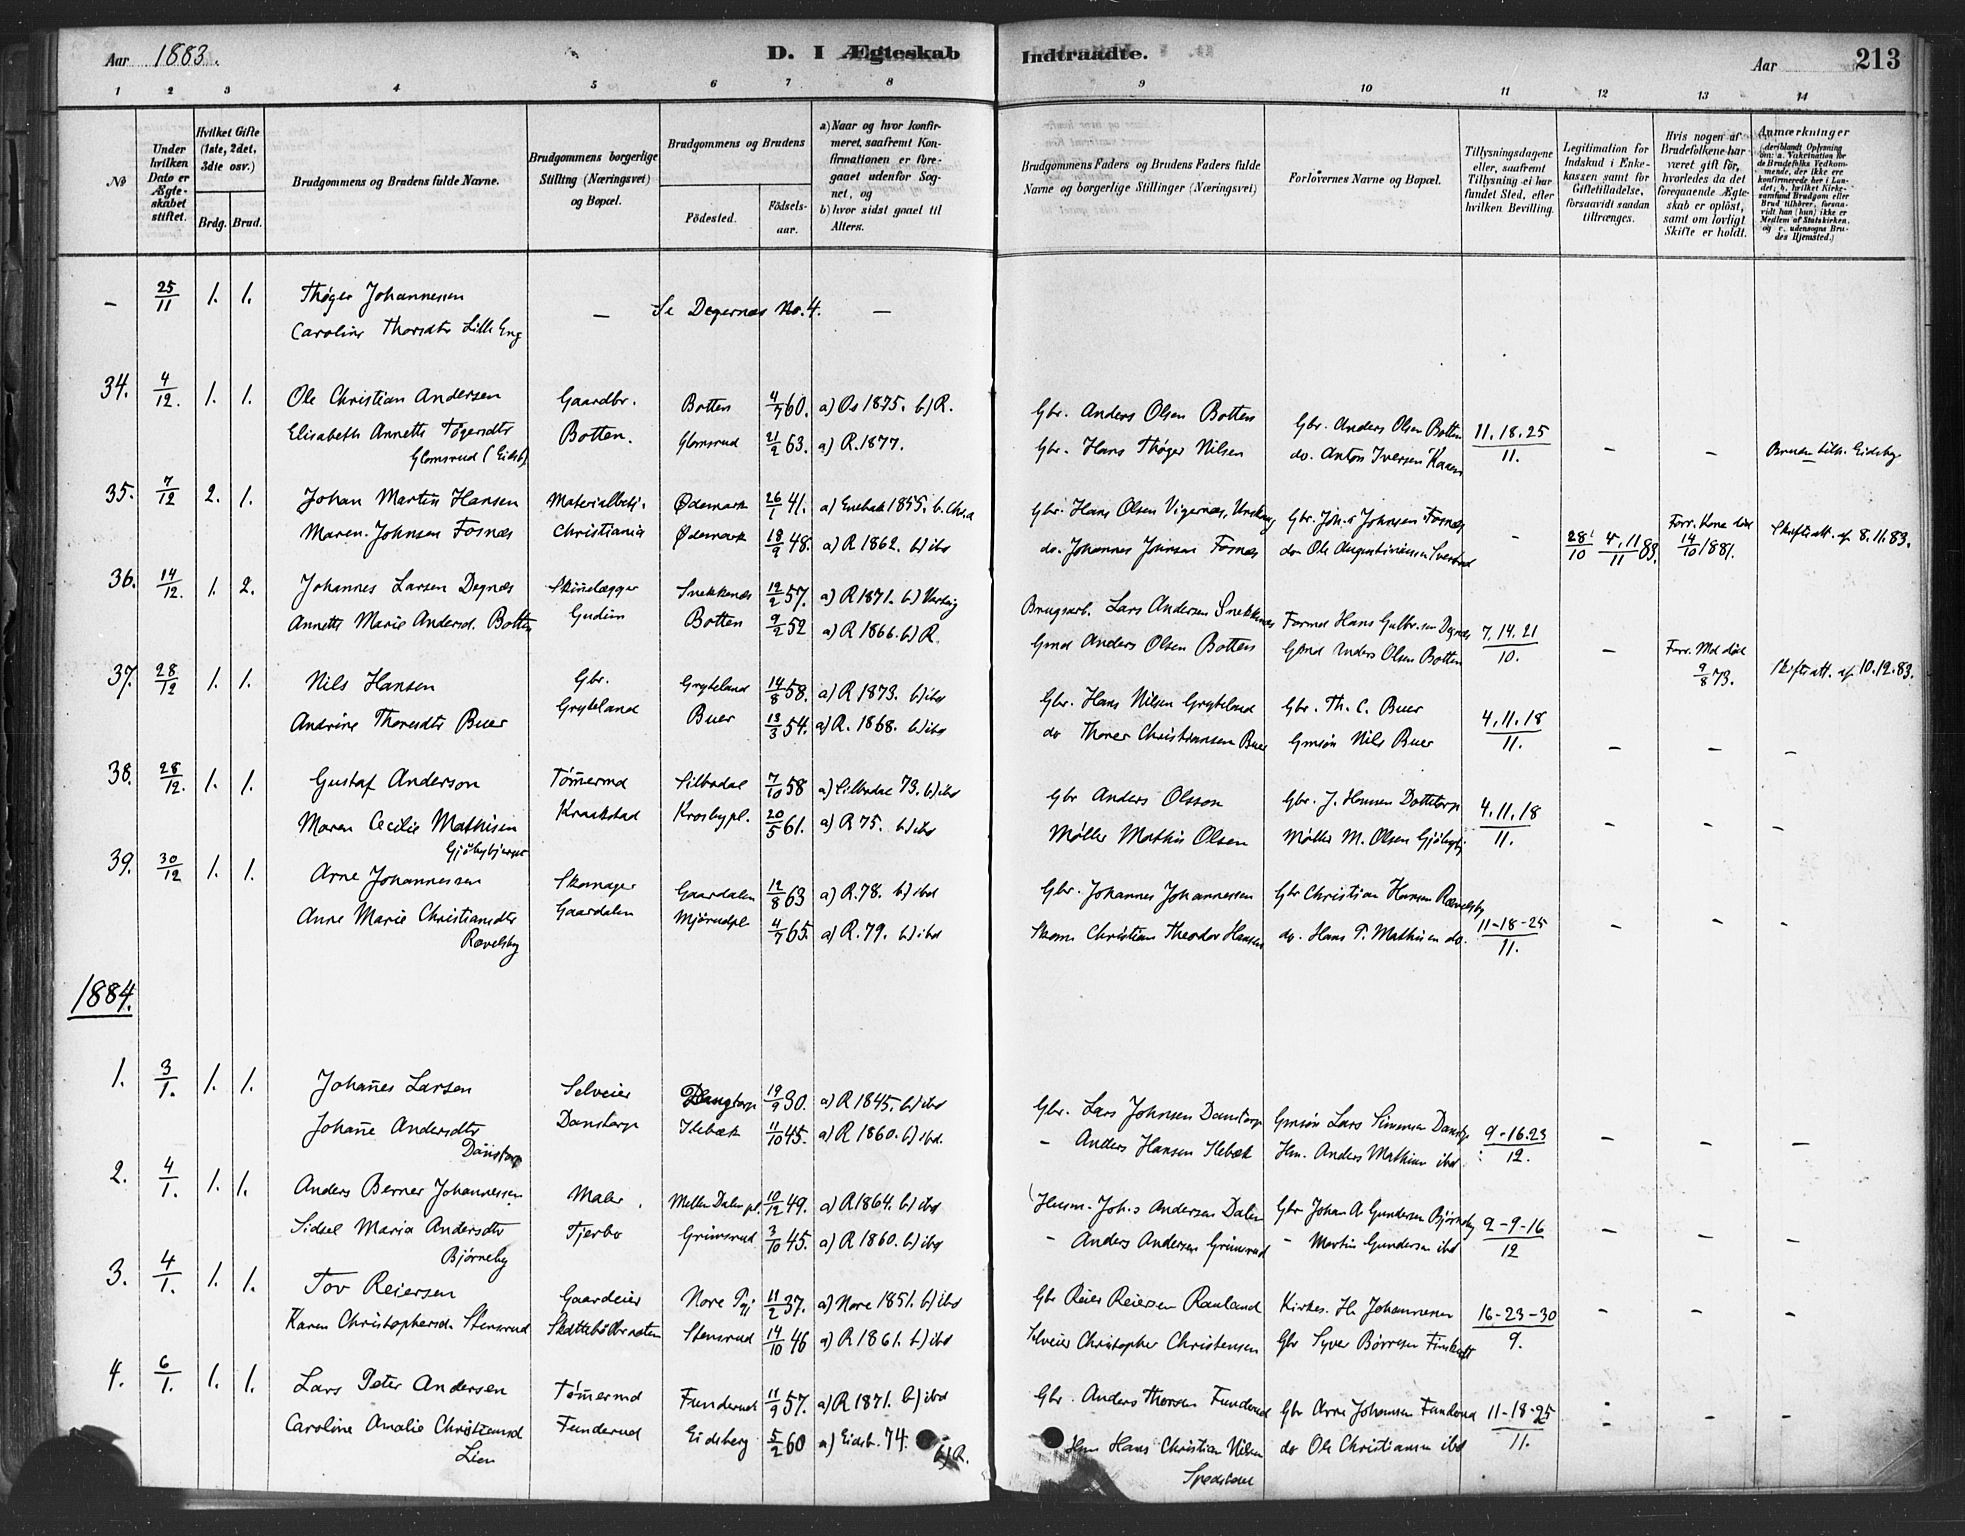 Aar 1883.
D. I Ægteskab
Indtraadte.
Aar
213
1 2 3 4 5 6 7 8 9 10 11 12 13 14
No
Under hvilken Dato er Ægteskabet stiftet.
Hvilket Gifte (1ste, 2det, 3die osv.)
Brdg. Brud.
Brudgommens og Brudens fulde Navne.
Brudgommens borgerlige Stilling (Næringsvei) og Bopæl.
Brudgommens og Brudens
Födested.
Födselsaar.
a) Naar og hvor konfirmeret, saafremt Konfirmationen er foregaaet udenfor Sognet, og
b) hvor sidst gaaet til Alters.
Brudgommens Faders og Brudens Faders fulde Navne og borgerlige Stillinger (Næringsvei)
Forlovernes Navne og Bopæl.
Tillysningsdagene eller, saafremt Tillysning ei har fundet Sted, efter hvilken Bevilling.
Legitimation for Indskud i Enkekassen samt for Giftetilladelse, forsaavidt saadan tiltrænges.
Hvis nogen af Brudefolkene har været gift för, hvorledes da det foregaaende Ægteskab er oplöst, samt om lovligt Skifte er holdt.
Anmærkninger (deriblandt Oplysning om: a. Vakcination for de Brudefolks Vedkommende, der ikke ere konfirmerede her i Landet; b. hvilket Kirkesamfund Brudgom eller Brud tilhörer, forsaavidt han (hun) ikke er Medlem af Statskirken, og c. udensogns Brudes Hjemsted.)
– 25/11 1. 1. Thøger Johannesen – Se Degernæs No. 4. –
Caroline Thorsdtr Lille Eng
34. 4/12. 1. 1. Ole Christian Andersen Gaardbr. Botten 4/7 60. a) Os 1875. b) R. Gbr. Anders Olsen Botten Gbr. Anders Olsen Botten 11.18.25/11. – –
Elisabeth Annette Tøgersdtr Botten. Glomsrud 21/2 63. a) R. 1877. Gbr. Hans Thøger Nilsen do. Anton Iversen Kaaen Bruden tilh. Eidsbg.
Glomsrud (Eidsb)
35. 7/12 2. 1. Johan Martin Hansen Materialbetj. Ødemark 26/1 41. a) Enebak 1855. b. Chr.a Gbr. Hans Olsen Vigernæs, Urskoug Gbr. Joh.s Johnsen Fosnæs – 28/10 4.11/11 83. Forr. Kone død 14/10 1881. Skifteatt. af 8.11.83.
Maren Johnsen Fosnæs Christiania Ødemark 18/9 48. a) R 1862. b) ibd do. Johannes Johnsen Fosnæs do Ole Augustinussen
36. 14/12. 1. 2. Johannes Larsen Degnæs Skinelægger Snekkenæs 12/2 57. a) R 1871. b) Varteig Brugsarb. Lars Andersen Snekkenæs Formd Hans Gulbr.sen Degnæs 7.14.21/10. –
Annette Marie Andersd. Botten Gudim Botten 9/2 52 a) R 1866. b) R. Gmd Anders Olsen Botten Gmd Anders Olsen Botten Forr. Md død 9/8 73. Skifteatt. af 10.12.83.
37. 28/12 1. 1. Nils Hansen Gbr. Gryteland 14/8 58. a) R 1873. b) ibd Gbr. Hans Nilsen Gryteland Gbr. Th. C. Buer 4.11.18/11. – – –
Andrine Thoresdtr Buer Gryteland Buer 13/3 54. a) R. 1868. b) ibd do Thorer Christiansen Buer Gmsøn Nils Buer
38. 28/12. 1. 1. Gustaf Anderson Tömermd Silbodal 7/10 58 a) Silbodal 73. b) ibd Gbr Anders Olsson Gbr. J. Hansen Dottetorp 4.11.18/11. – – –
Maren Cecilie Mathisen Kraakstad Krosbypl. 20/5 61. a) R 75. b) ibd Møller Mathis Olsen Møller M. Olsen
39. 30/12 1. 1. Arne Johannessen Skomager Gaardalen 12/8 63 a) R. 78. b) ibd Gbr. Johannes Johannessen Gbr Christian Hansen Rævelsby 11-18-25/11. – – –
Anne Marie Christiansdtr Gaardalen Mjørudpl 4/7 65. a) R. 79. b) ibd Skom Christian Theodor Hansen do. Hans P. Mathisen do.
Rævelsby
1884.
1. 3/1. 1. 1. Johañes Larsen Selveier 19/9 30. a) R 1845. b) ibd Gbr. Lars Johnsen Danstorp Gmsøn Lars Simensen Danstp 9-16.23/12. – – –
Johañe Andersdtr Danstorp Ilebæk 11/10 45. a) R 1860. b) ibd. – Anders Hansen Ilebæk Hm. Anders Mathisen ibd
Danstorp
2. 4/1. 1. 1. Anders Berner Johannessen Maler. Mellem Dalen pl. 10/12 49. a) R 1864. b) ibd Husm. Joh.s Andersen Dalen Gbr Johan A. Gundersen Bjørneby 2-9-16/12 – – –
Sidsel Maria Andersdtr Tjerbo Grimsrud 3/10 45. a) R 1860. b) ibd – Anders Andersen Grimsrud – Martin Gundersen ibd
Bjørneby
3. 4/1. 1. 1. Tov Reiersen Gaardeier Nore Pgj 11/2 37. a) Nore 1851. b) ibd Gbr Reier Reiersen Rauland Kirkes. H. Johannesen 16-23-30/9. – – –
Karen Christophersd. Stensrud Skottebölbraaten Stensrud 14/10 46 a) R 1861. b) ibd Selveier Christopher Christensen Gbr Syver Børresen
4. 6/1. 1. 1. Lars Peter Andersen Tömermd Funderud 11/9 57. a) R 1871. b) ibd Gbr. Anders Thorsen Funderud Gbr Arne Johansen Funderud 11-18-25/11. – – –
Caroline Amalie Christiansd Funderud Eidsberg 5/2 60 a) Eidsb. 74. b) R. Hm Hans Christian Nilsen do Ole Christiansen ibd
Lien